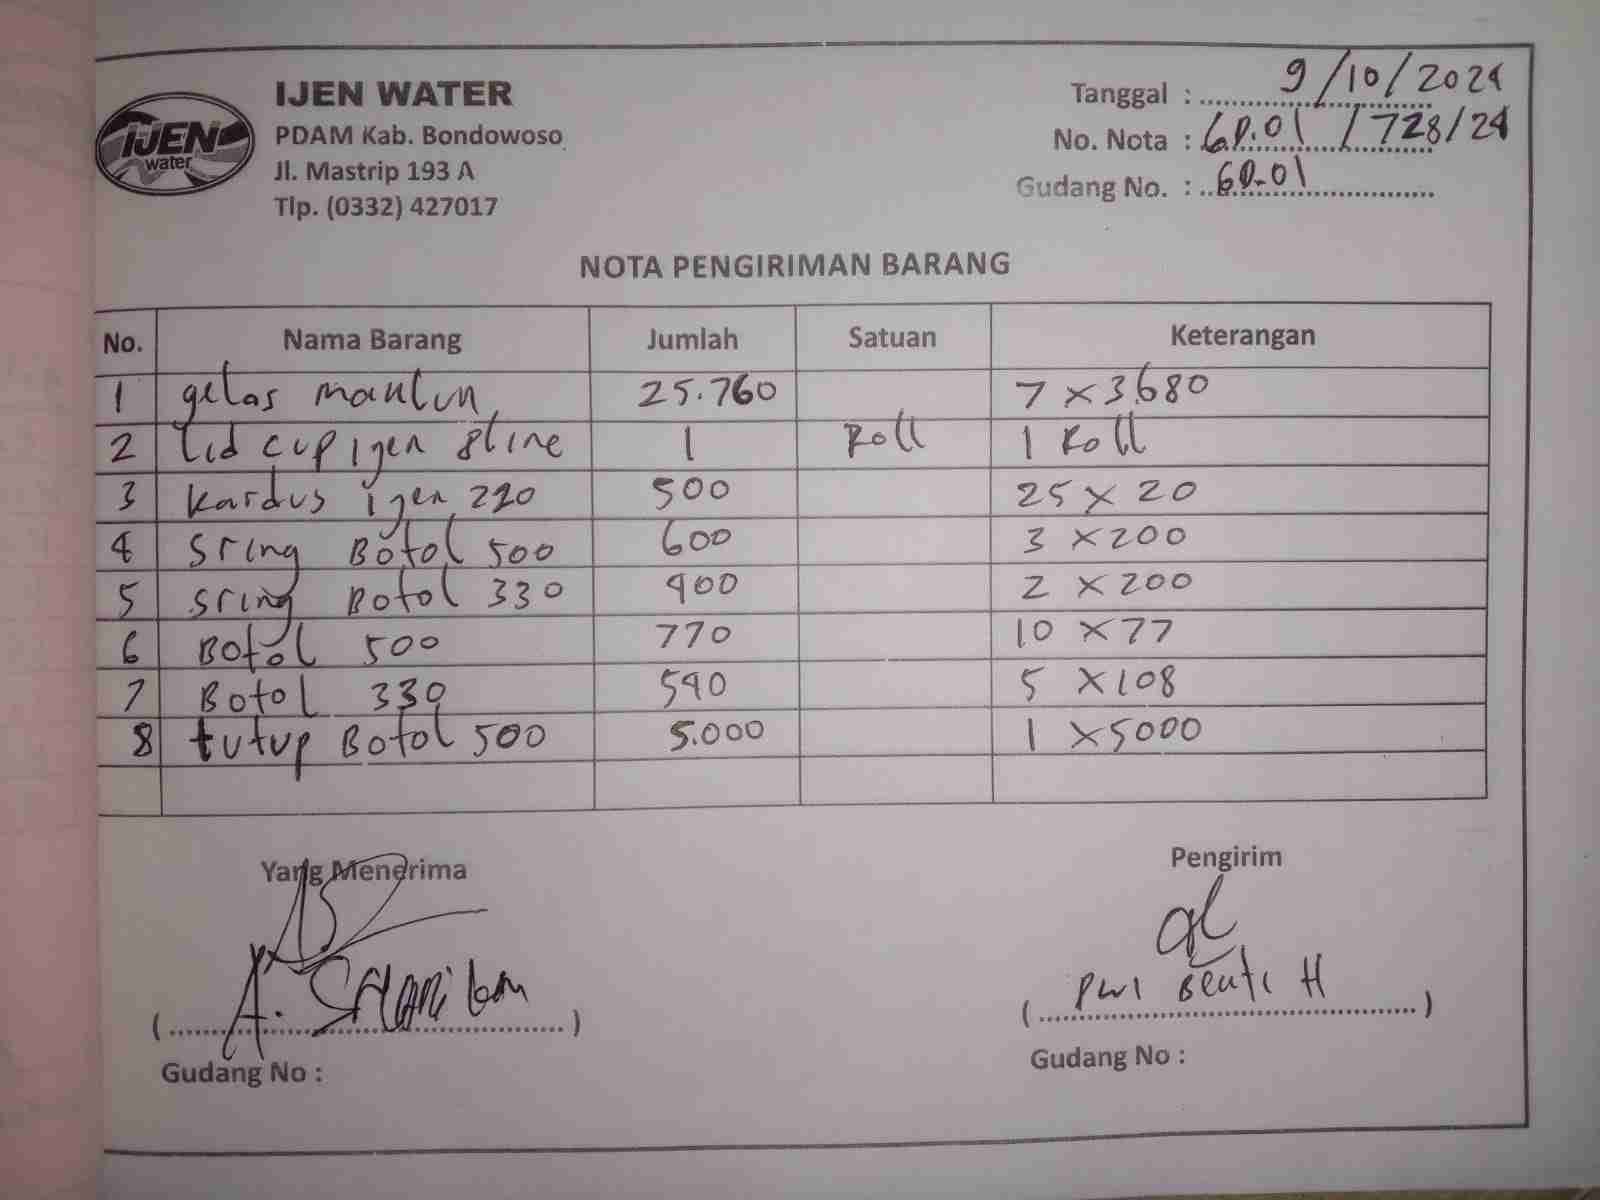 IJEN water
IJEN WATER
PDAM Kab. Bondowoso
Jl. Mastrip 193 A
Tlp. (0332) 427017
Tanggal : 9/10/2024
No. Nota : GD.01 /728/24
Gudang No. : GD.01
NOTA PENGIRIMAN BARANG
No. Nama Barang Jumlah Satuan Keterangan
1 gelas 25.760 7 x 3.680
2 Lid cup ijen 8 line 1 Roll 1 Roll
3 Kardus ijen 220 500 25 x 20
4 Sring Botol 500 600 3 x 200
5 Sring Botol 330 400 2 x 200
6 Botol 500 770 10 x 77
7 Botol 330 540 5 x 108
8 tutup Botol 500 5.000 1 x 5000
Yang Menerima Pengirim
A. H
(........................) (........................)
Gudang No : Gudang No :